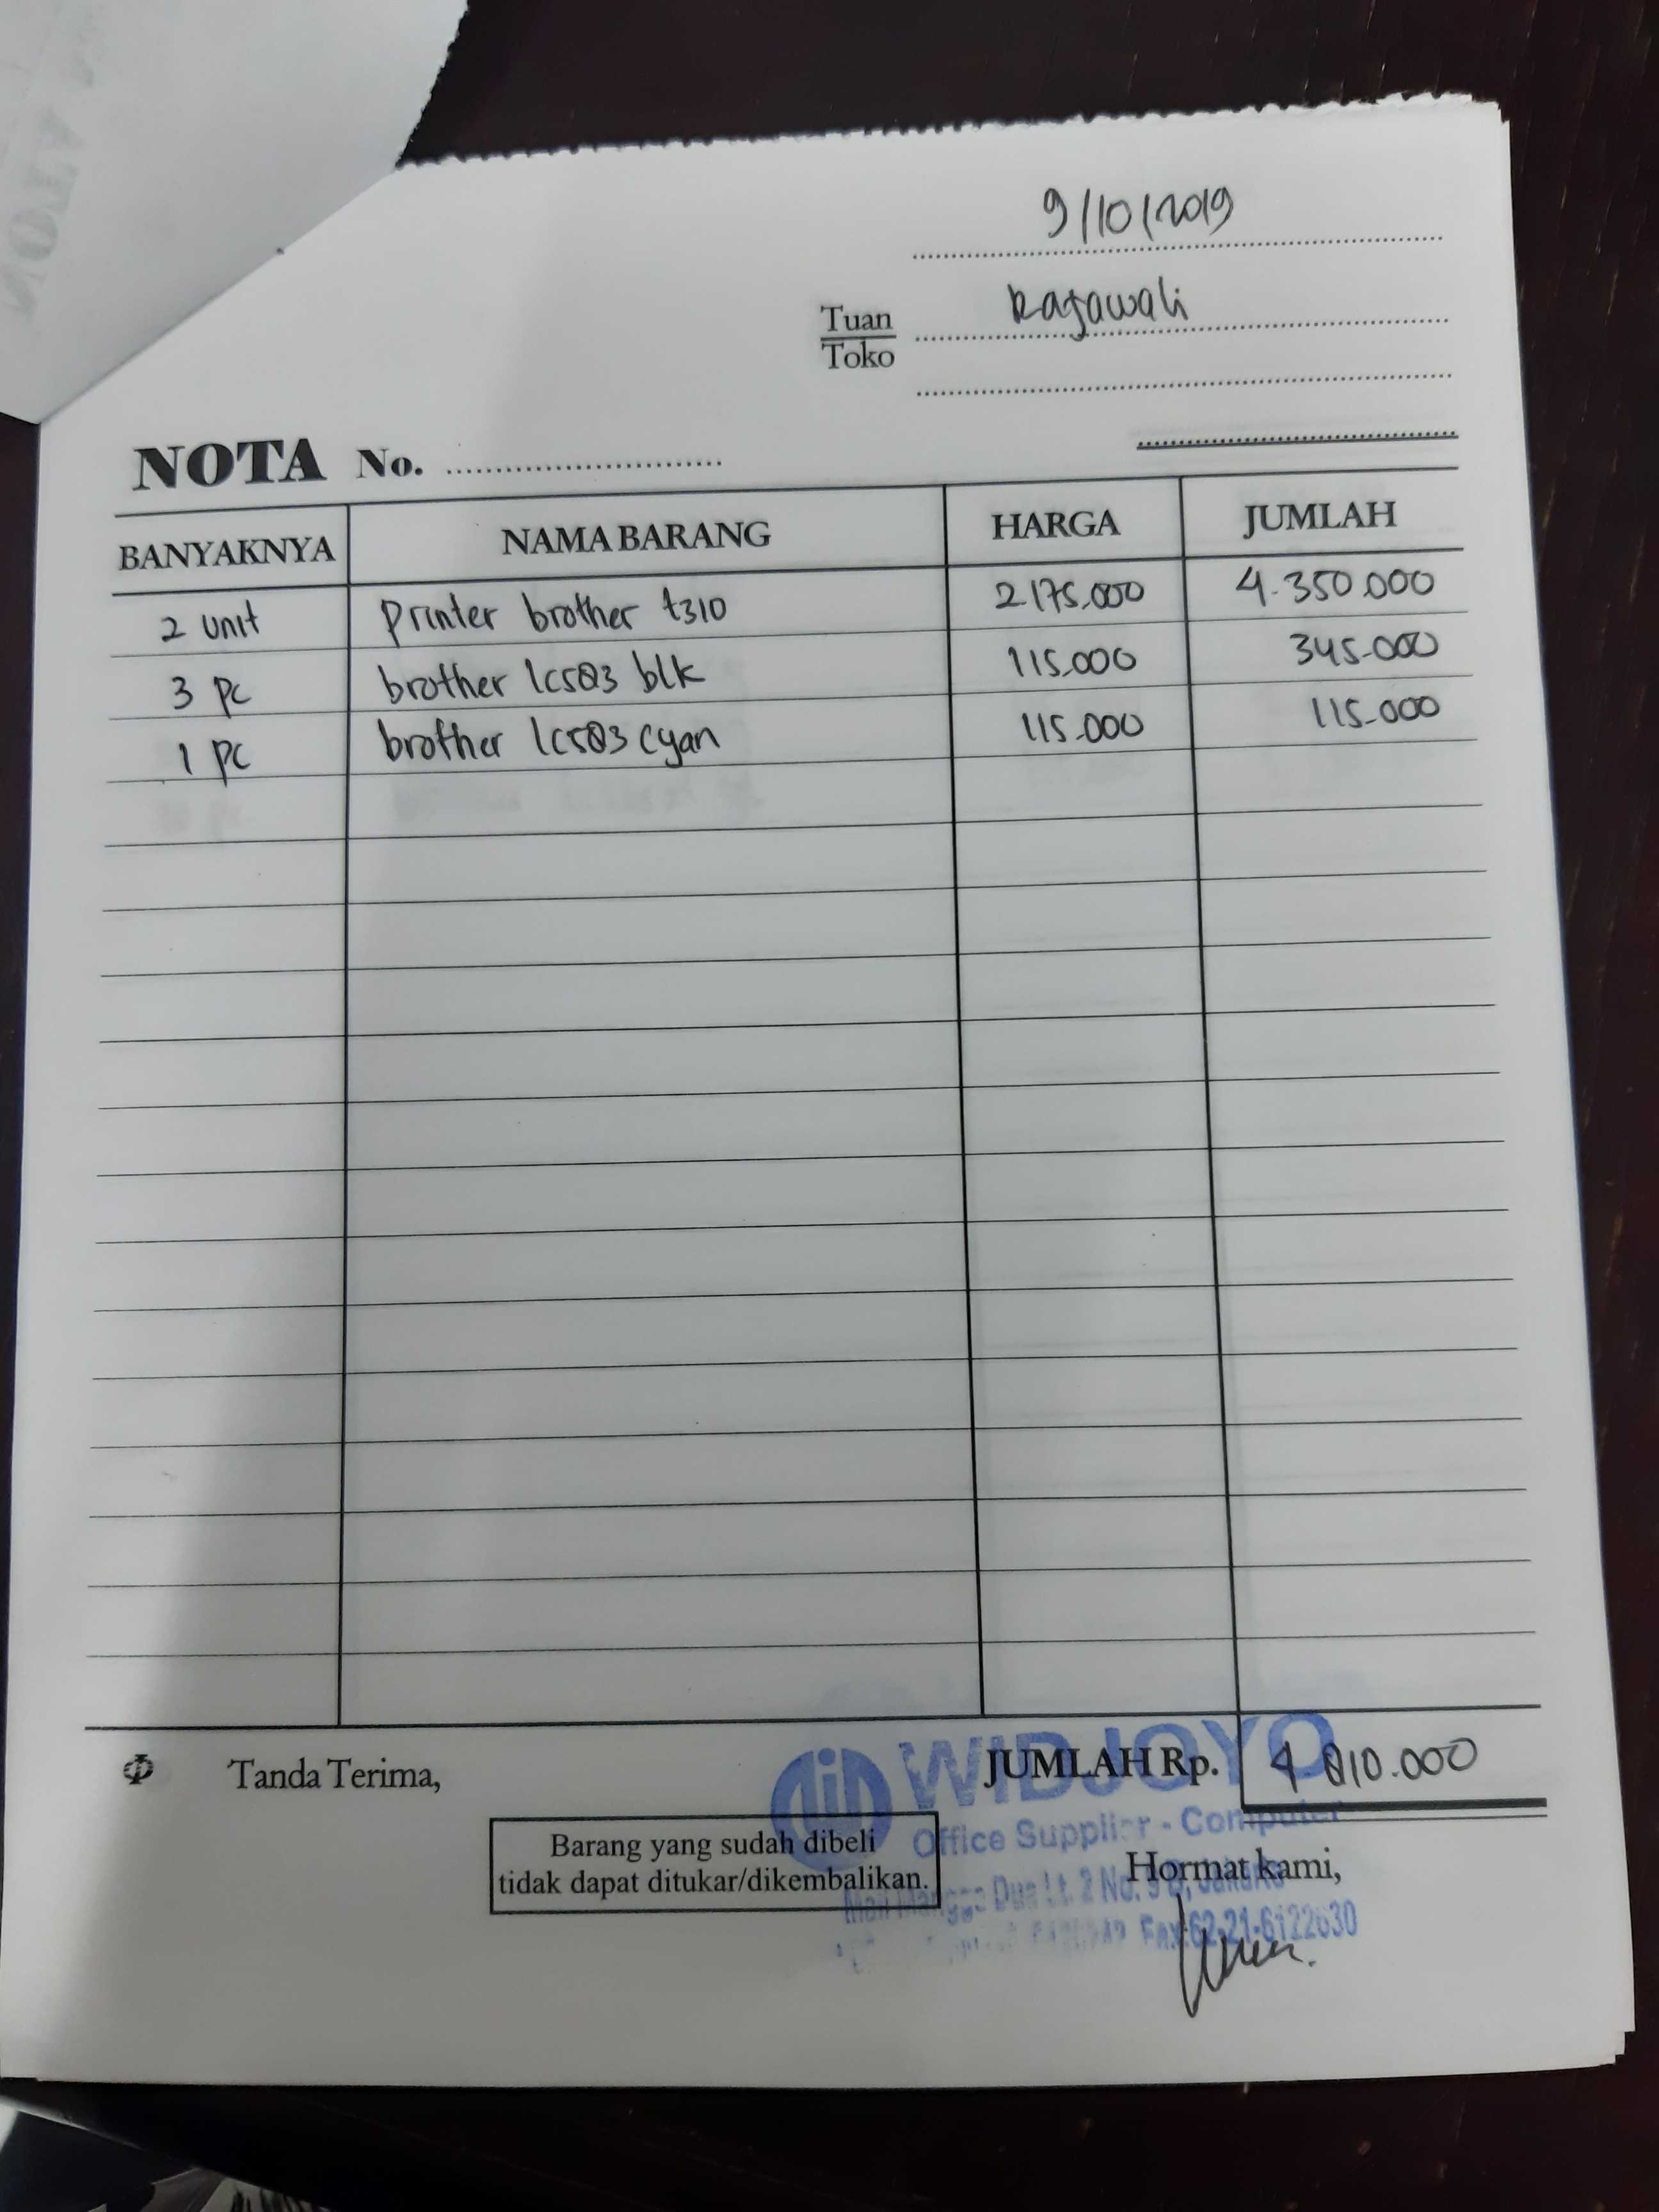 9/10/2019
Tuan
Toko
Rajawali
NOTA No.
BANYAKNYA NAMA BARANG HARGA JUMLAH
2 unit Printer brother t310 2.175.000 4.350.000
3 pc brother lc583 blk 115.000 345.000
1 pc brother lc583 cyan 115.000 115.000
Tanda Terima,
JUMLAH Rp. 4.810.000
WIDJOYO
Office Supplier - Computer
Barang yang sudah dibeli
tidak dapat ditukar/dikembalikan.
Hormat kami,
Mall Mangga Dua Lt. 2 No.
Fax:62-21-6122630